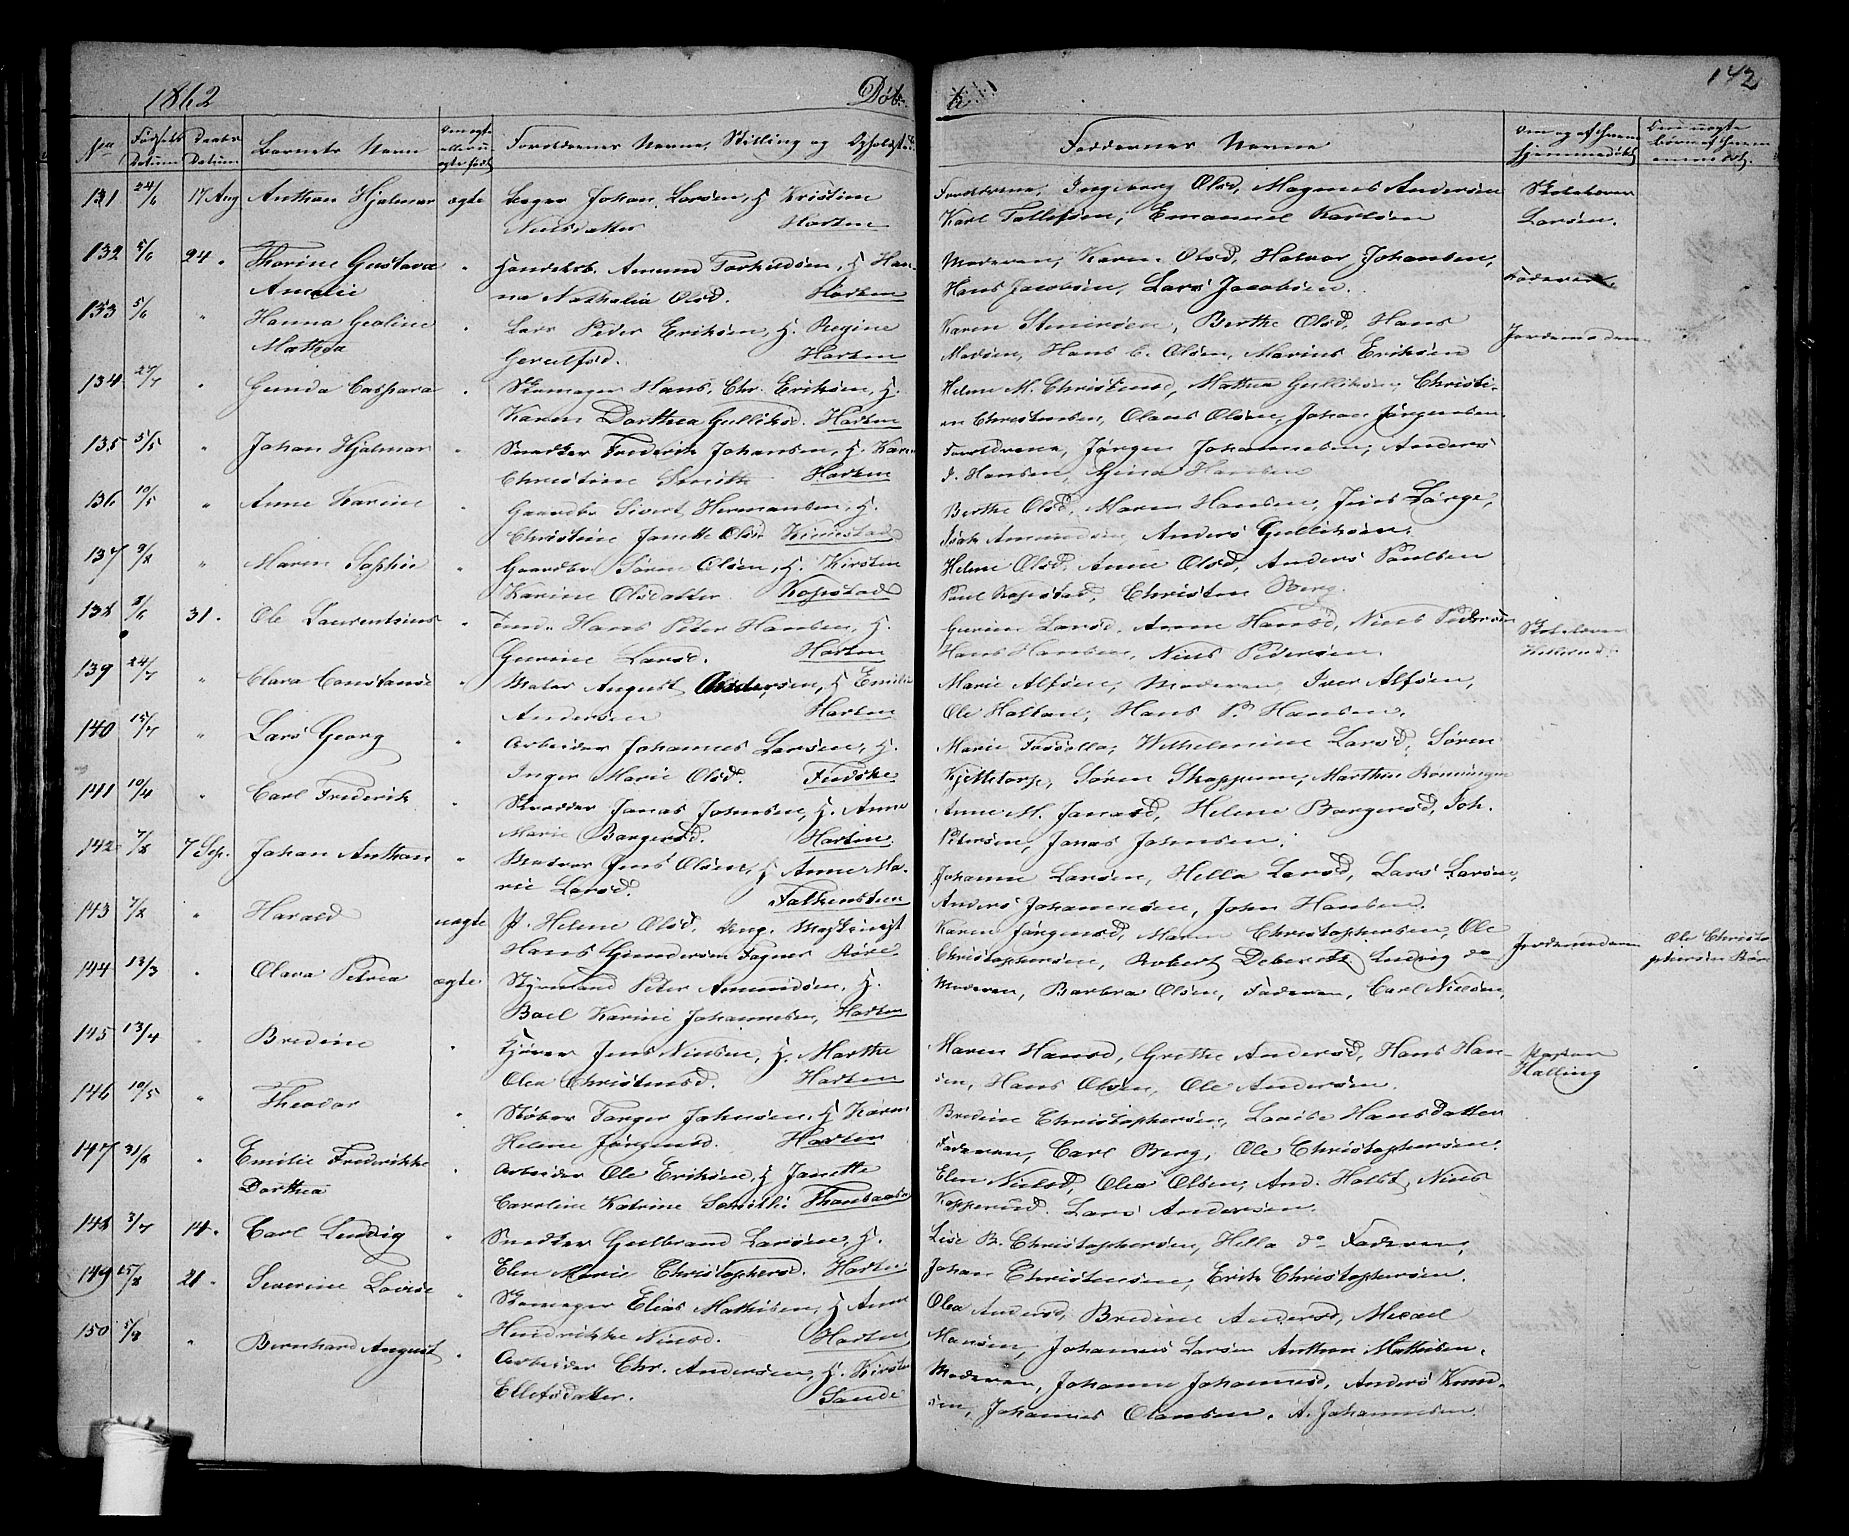 1862
Døb-
te
142
No
Fødsels Datum
Daabs Datum
Barnets Navn
Om ægte eller uægte født
Forældrenes Navne, Stilling og Opholdsted
Faddernes Navne
131 24/6 17 Aug Anthon Hjalmar ægte
Johan Larsen, H. Kristine
Nielsdatter Horten
Forældrene, Ingeborg Olsd, Magnus Andersen
Karl Tollefsen, Emanuel Karlsen
Skolelærer
Larsen.
132 5/6 24 " Thorine Gustava
Amalie
Handelsb. Amund Torkildsen, H. Han-
na Nathalia Olsd. Horten
Moderen, Karen Olsd, Halvor Johansen,
Hans Jacobsen, Lars Jacobsen.
Faderen
133 5/6 " Hanna Gealine
Mathea
Lods Peder Eriksen, H. Regine
Horten
Karen Berthe Olsd, Hans
Madsen, Hans C. Olsen, Marius Eriksen
Jordemoderen
134 27/7 " Gunda Caspara
Skomager Hans Chr. Eriksen, H.
Karen Dorthea Gulliksd. Horten
Helene M. Christensd, Mathea Christi-
an Christensen, Olaus Olsen, Johan Jørgensen
135 5/5 " Johan Hjalmar
Snedker Frederik Johansen, H. Karen
Christine Smith Horten
Forældrene, Jørgen Johannesen, Anders
J. Hansen, Gina Hansen
136 10/5 " Anne Karine
Gaardbr Sivert Hermansen, H.
Christine Janette Olsd
Berthe Olsd, Maren Hansen, Jens
Isak Amundsen, Anders Gulliksen.
137 Maren Sophie
Gaardbr Søren Olsen, H. Kirsten
Karine Olsdatter. Kopstad
Helene Olsd, Anne Olsd, Anders Paulsen
Paul Kopstad, Christen Berg.
138 31. Ole Laurentsius
Hans Peter Hansen, H.
Gurine Larsd. Horten
Gurine Larsd, Anne Hansd, Niels Pedersen
Hans Hansen, Niels Pedersen.
Skolelærer
139 24/7 " Clara Constanse
Maler August Andersen, H. Emilie
Andersen Horten
Marie Alfsen, Moderen, Iver Alfsen,
Ole Holtan, Hans P. Hansen.
140 15/7 " Lars Georg
Arbeider Johannes Larsen, H.
Inger Marie Olsd.
Marie Wilhelmine Larsd, Søren
Kjelletorp, Søren Skoppum, Marthin Rønningen
141 10/4 " Carl Frederik
Skrædder Jonas Johnsen, H. Anne
Marie Borgersd. Horten
Anne M. Jonasd, Helene Borgersd, Joh.
Petersen, Jonas Johnsen.
142 7/8 7 Sep. Johan Anthon
Jens Olsen, H. Anne Ma-
rie Larsd. Falkensteen
Johanne Larsen, Hella Larsd, Lars Larsen,
Anders Johannesen, John Hansen.
143 7/2 " Harald uægte
P. Helene Olsd.
Hans Gundersen
Karen Jørgensd, Maren Christophersen, Ole
Christophersen, Robert Ludvig do
Jordemoderen
Ole Christo-
phersen
144 13/3 " Olava Petrea ægte
Styrmand Peter Amundsen, H.
Boel Karine Johannesen, Horten
Moderen, Barbra Olsen, Faderen, Carl Nielsen,
145 13/4 " Bredine
Jens Nielsen, H. Marthe
Olea Christensd. Horten
Maren Hansd, Grethe Andersd, Hans Han-
sen, Hans Olsen, Ole Andersen.
Halling
146 10/5 " Theodor
Støber Torger Johnsen, H. Karen
Helene Jørgensd. Horten
Bredine Christophersen, Lovise Hansdatter
Faderen, Carl Berg, Ole Christophersen.
147 31/8 " Emilie Fredrikke
Dorthea
Arbeider Ole Eriksen, H. Janette
Caroline Katrine
Elen Nielsd, Olea Olsen, And. Holst, Niels
Kopperud. Lars Andersen.
148 3/7 14. Carl Ludvig
Snedker Gulbrand Larsen, H.
Elen Marie Christophersd. Horten
Lise B. Christophersen, Hella do Faderen,
Johan Christensen, Erik Christophersen.
149 21. Severine Lovise
Skomager Elias Mathisen, H. Anne
Hendrikke Nielsd. Horten
Olea Andersd, Bredine Andersd, Micael
Hansen, Johannes Larsen Anthon Mathisen.
150 " Bernhard August
Arbeider Chr. Andersen, H. Kirsten
Ellefsdatter. Sande
Moderen, Johanne Johannesd, Anders Knud-
sen, Johannes Olausen. A. Johannesen.